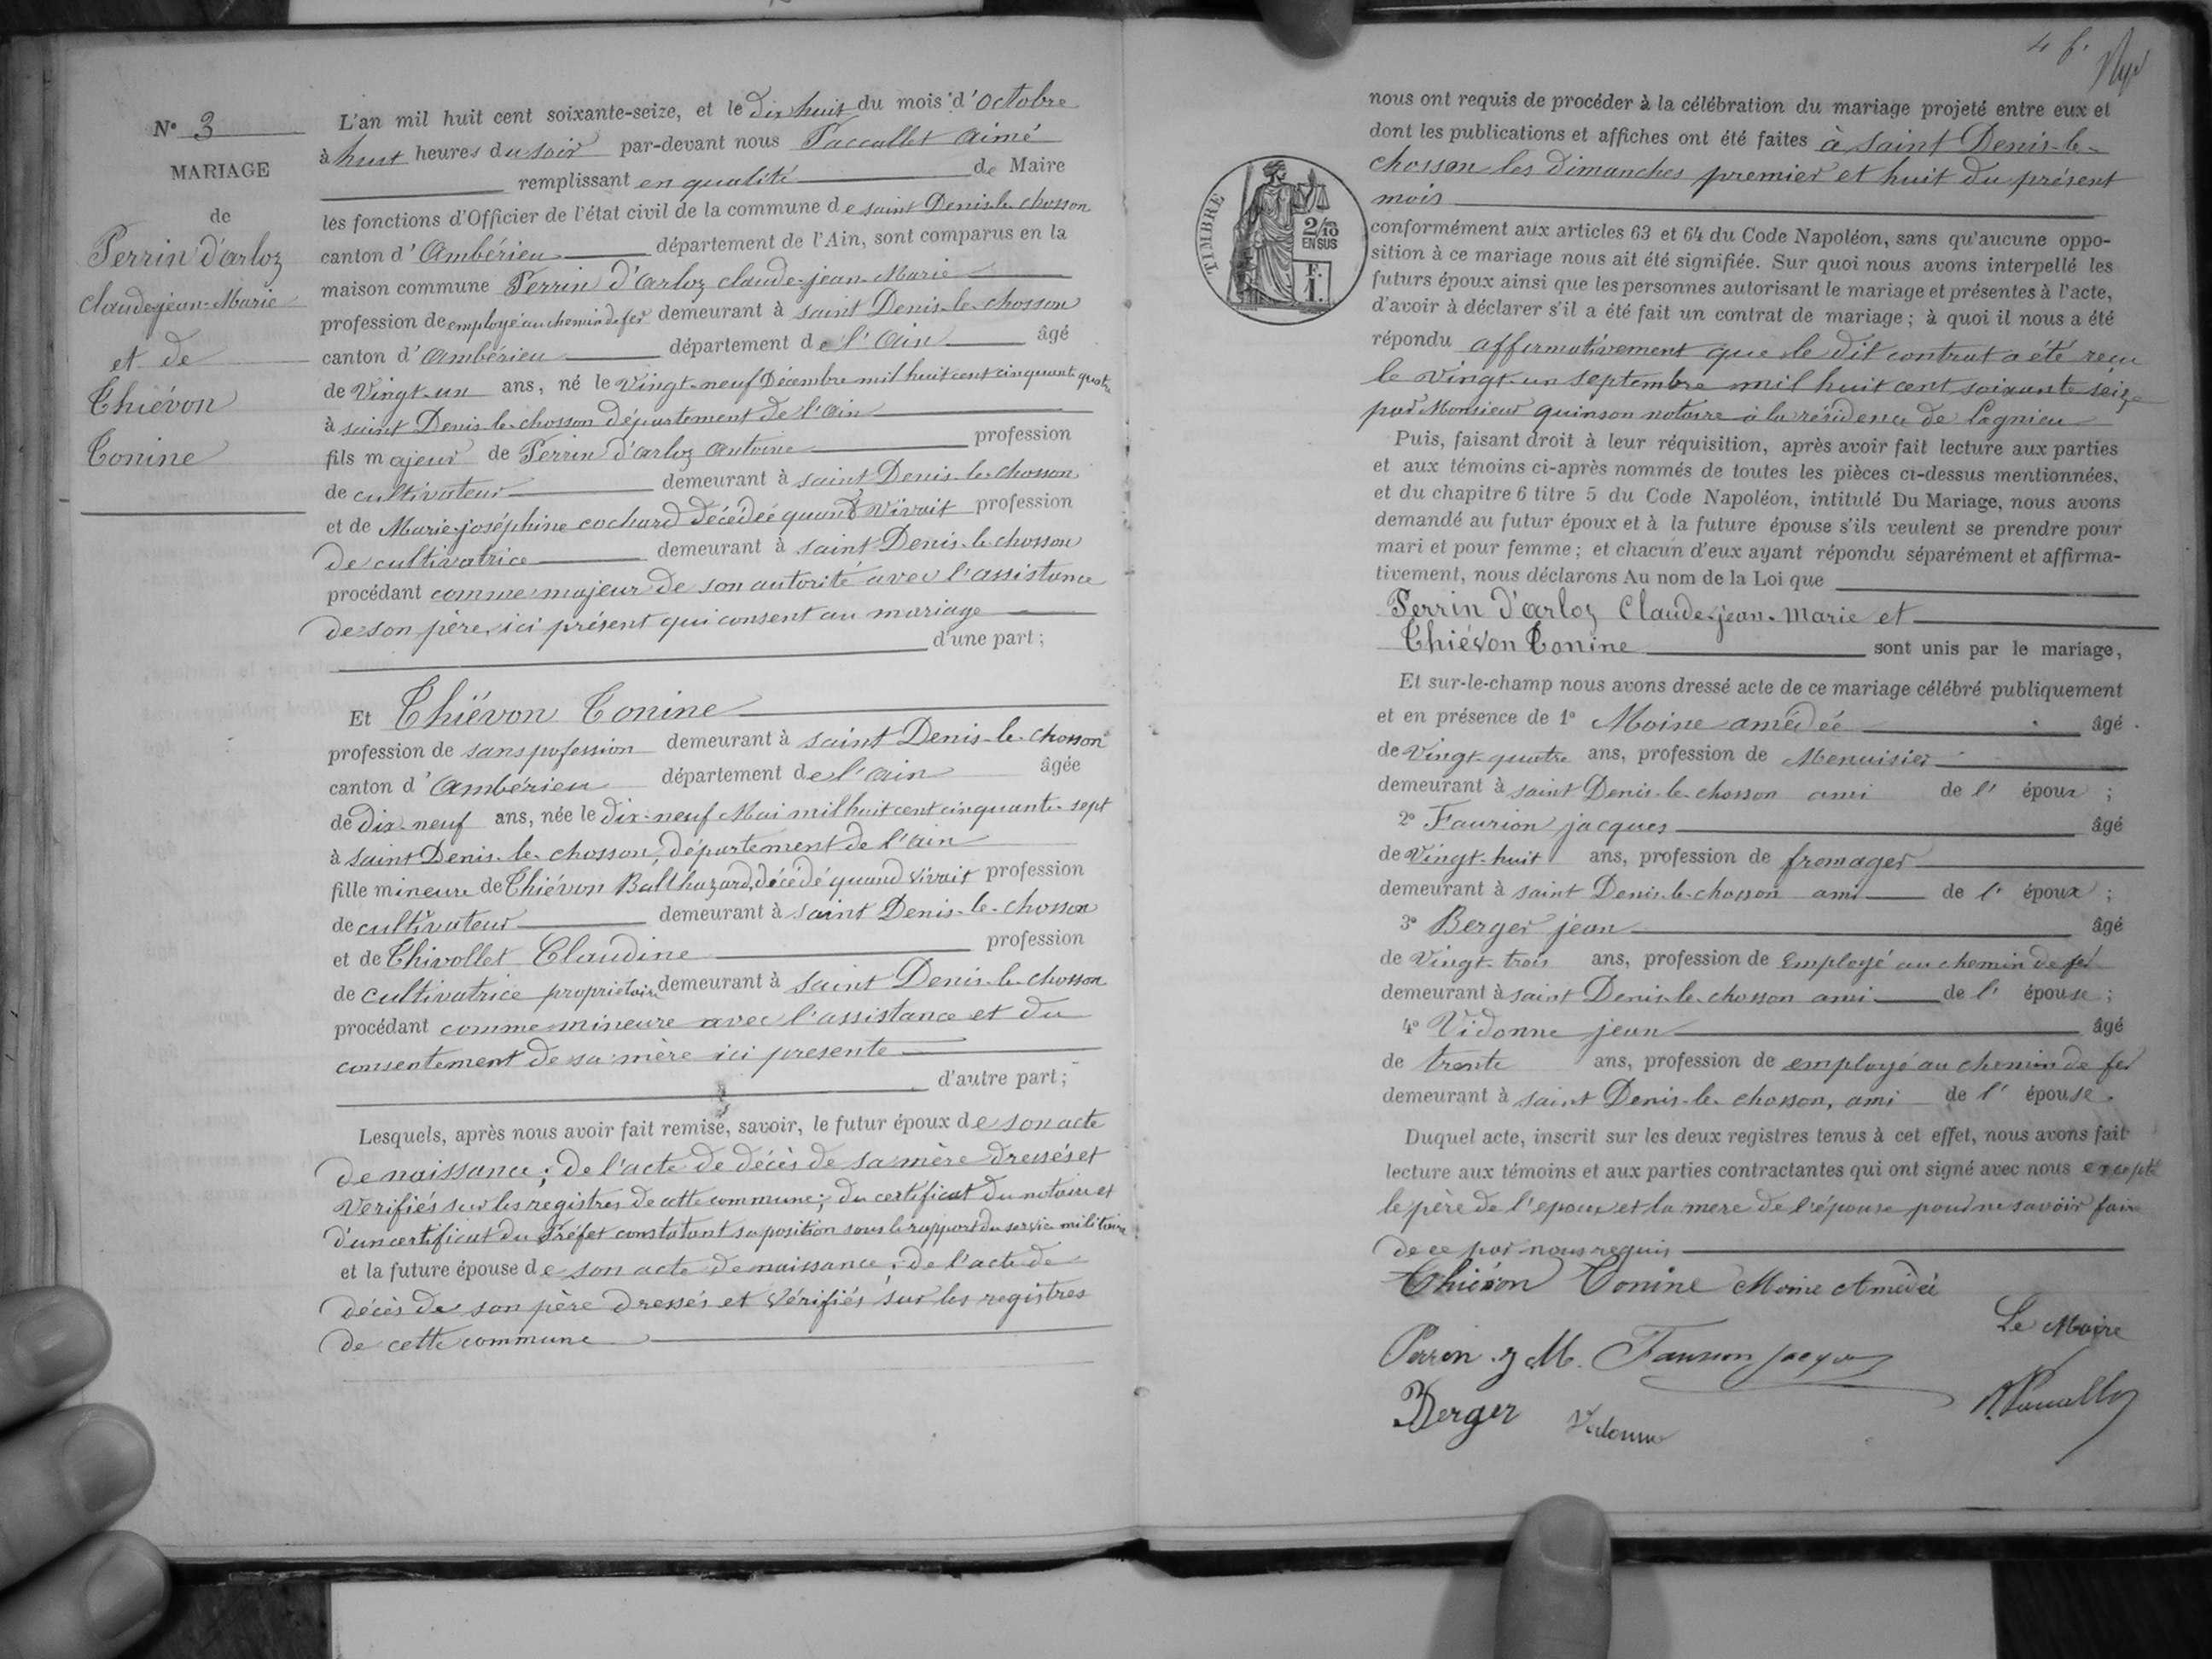 N° 3
MARIAGE
de
Perrin d'arloz
Claude-jean-Marie
et de
Thiévon
Tonine
L'an mil huit cent soixante-seize, et le dix huit du mois d'octobre
à huit heures du soir par-devant nous Paccallet Aimé
remplissant en qualité de Maire
les fonctions d'Officier de l'état civil de la commune de saint Denis-le-chosson
canton d'Ambérieu département de l'Ain, sont comparus en la
maison commune Perrin d'arloz claude-jean-Marie
profession de employé au chemin de fer demeurant à saint Denis-le-chosson
canton d'Ambérieu département de l'Ain âgé
de Vingt-un ans, né le Vingt-neuf Décembre mil huit cent cinquante quatre
à saint Denis-le-chosson département de l'ain
fils majeur de Perrin d'arloz Antoine profession
de cultivateur demeurant à saint Denis-le-chosson
et de Marie-joséphine cochard décédée quand vivait profession
de cultivatrice demeurant à saint Denis-le-chosson
procédant comme majeur de son autorité avec l'assistance
de son père, ici présent qui consent au mariage
d'une part;
Et Thiévon Tonine
profession de sans pofession demeurant à saint Denis-le-chosson
canton d'Ambérieu département de l'ain âgée
de dix-neuf ans, née le dix-neuf Mai mil huit cent cinquante-sept
à saint Denis-le-chosson, département de l'ain
fille mineure de Thiévon Balthazard, décédé quand vivait profession
de cultivateur demeurant à saint Denis-le-chosson
et de Thivollet Claudine profession
de cultivatrice propriétaire demeurant à saint Denis-le-chosson
procédant comme mineure avec l'assistance et du
consentement de sa mère ici presente
d'autre part;
Lesquels, après nous avoir fait remise, savoir, le futur époux de son acte
de naissance; de l'acte de décès de sa mère dressés et
Vérifiés sur les registres de cette commune; du certificat du notaire et
d'un certificat du Préfet constatant sa position sous le rapport du service militaire
et la future épouse de son acte de naissance; de l'acte de
décès de son père dressés et vérifiés sur les registres
de cette commune
4 f.
nous ont requis de procéder à la célébration du mariage projeté entre eux et
dont les publications et affiches ont été faites à saint Denis-le-
chosson les dimanches premier et huit du présent
mois
TIMBRE
2/10
EN SUS
F.
1.
conformément aux articles 63 et 64 du Code Napoléon, sans qu'aucune oppo-
sition à ce mariage nous ait été signifiée. Sur quoi nous avons interpellé les
futurs époux ainsi que les personnes autorisant le mariage et présentes à l'acte,
d'avoir à déclarer s'il a été fait un contrat de mariage; à quoi il nous a été
répondu affirmativement que le dit contrat a été reçu
le vingt-un septembre mil huit cent soixante seize
par Monsieur quinson notaire à la résidence de Lagnieu
Puis, faisant droit à leur réquisition, après avoir fait lecture aux parties
et aux témoins ci-après nommés de toutes les pièces ci-dessus mentionnées,
et du chapitre 6 titre 5 du Code Napoléon, intitulé Du Mariage, nous avons
demandé au futur époux et à la future épouse s'ils veulent se prendre pour
mari et pour femme; et chacun d'eux ayant répondu séparément et affirma-
tivement, nous déclarons Au nom de la Loi que
Perrin d'arloz Claude-jean-Marie et
Thiévon Tonine sont unis par le mariage,
Et sur-le-champ nous avons dressé acte de ce mariage célébré publiquement
et en présence de 1° Moine amédée âgé
de Vingt-quatre ans, profession de Menuisier
demeurant à saint Denis-le-chosson ami de l'époux;
2° Faurion jacques âgé
de Vingt-huit ans, profession de fromager
demeurant à saint Denis-le-chosson ami de l'époux;
3° Berger jean âgé
de Vingt-trois ans, profession de Employé au chemin de fer
demeurant à saint Denis-le-chosson ami de l'épouse;
4° Vidonne jean âgé
de trente ans, profession de employé au chemin de fer
demeurant à saint Denis-le-chosson, ami de l'épouse.
Duquel acte, inscrit sur les deux registres tenus à cet effet, nous avons fait
lecture aux témoins et aux parties contractantes qui ont signé avec nous excepté
le père de l'epoux et la mere de l'épouse pour ne savoir faire
de ce par nous requis
Thiévon Tonine Moine Amédée
Le Maire
Perrin J M. Faurion Jacques
Berger Vidonne